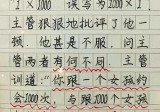 1×1000 误写为 1000×1
主管狠狠地批评了他一
顿。他甚是不服,问主
管两者有何不同。主管
训道:“你跟一个女孩约
会1000次,与跟1000个女孩